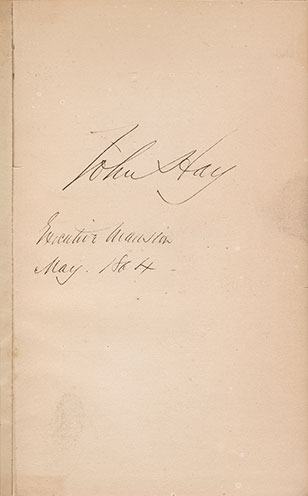 John Hay
Executive Mansion
May. 1864